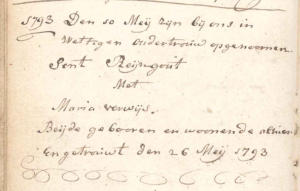 1793 Den 10 Meij zijn bij ons in
Wettigen ondertrouw opgenoomen
Sent Reijngoút
Met
Maria verwijs.
Beijde gebooren en woonende alhier
En getrouwt den 26 Meij 1793